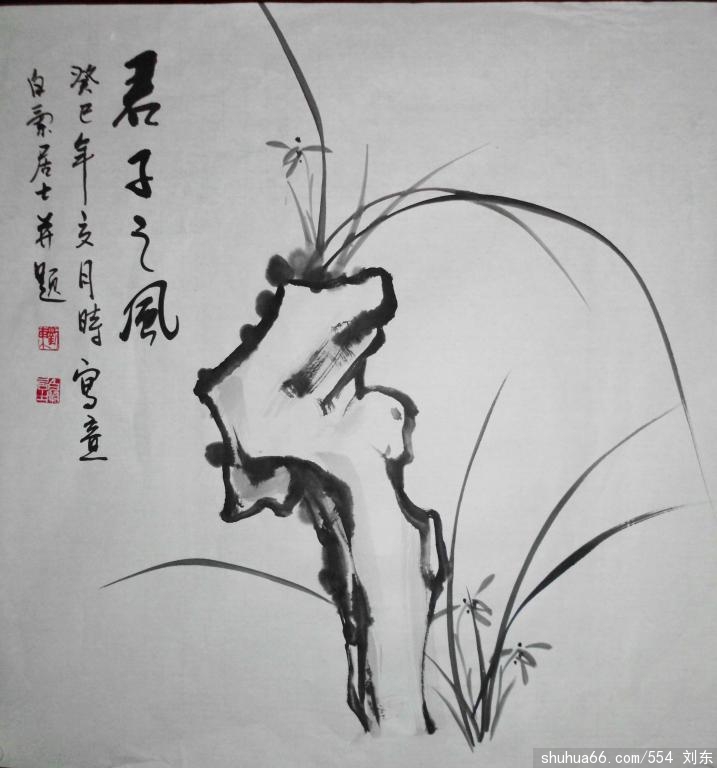 君子之風
癸巳年亥月時寫意
白雲居士并題
shuhua66.com/554 刘东